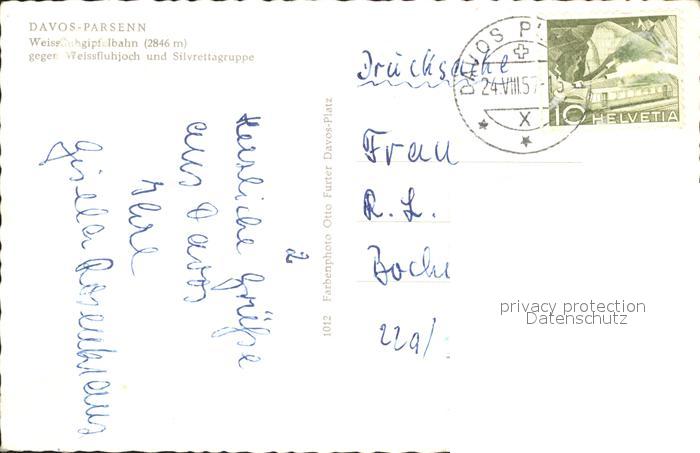 DAVOS-PARSENN
Weissfluhgipfelbahn (2846 m)
gegen Weissfluhjoch und Silvrettagruppe
Herzliche Grüße
aus Davos
Ihre
Gisela Rosenkranz
2
1012 Farbenphoto Otto Furter Davos-Platz
Drucksache
DAVOS P
24.VIII.57-15
X
10 HELVETIA
Frau
R. L.
Boch
22a/
privacy protection
Datenschutz